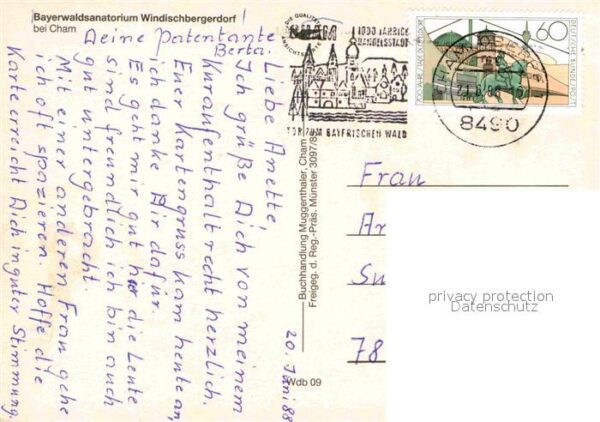 Bayerwaldsanatorium Windischbergerdorf
bei Cham
20. Juni 88
Liebe Anette!
Ich grüße Dich von meinem
Kuraufenthalt recht herzlich.
Euer Kartengruss kam heute an,
ich danke Dir dafür.
Es geht mir gut hier die Leute
sind freundlich ich bin auch
gut untergebracht.
Mit einer anderen Frau gehe
ich oft spazieren. Hoffe die
Karte erreicht Dich in guter Stimmung.
Deine Patentante
Berta.
CHAM
1000 JÄHRIGE
HANDELSSTADT
TOR ZUM BAYERISCHEN WALD
60
DEUTSCHE BUNDESPOST
8490
Buchhandlung Muggenthaler, Cham
Freigeg. d. Reg.-Präs. Münster 3097/8
Wdb 09
Frau
An
Su
78
privacy protection
Datenschutz